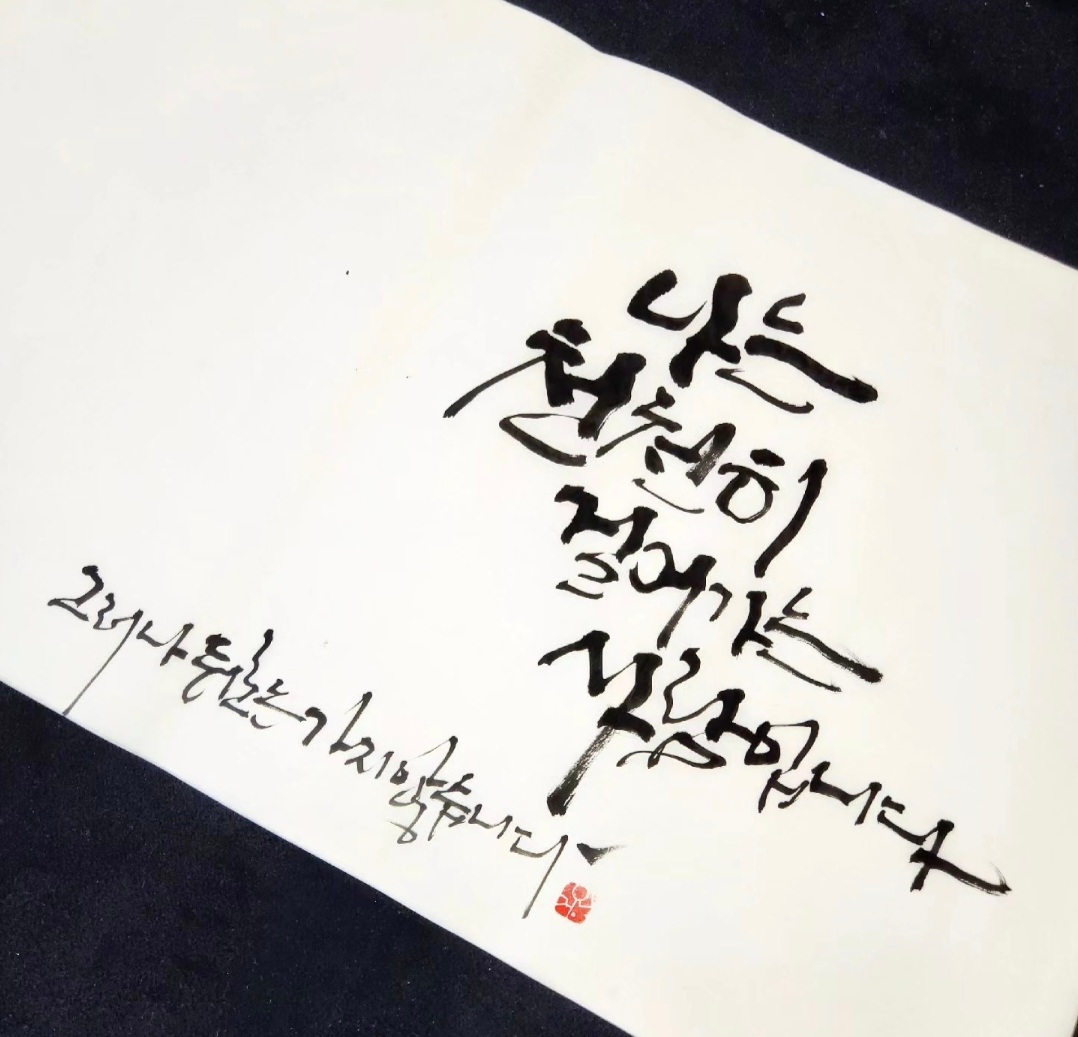 나는
천천히
걸어가는
사람입니다
그러나 뒤로는 가지 않습니다